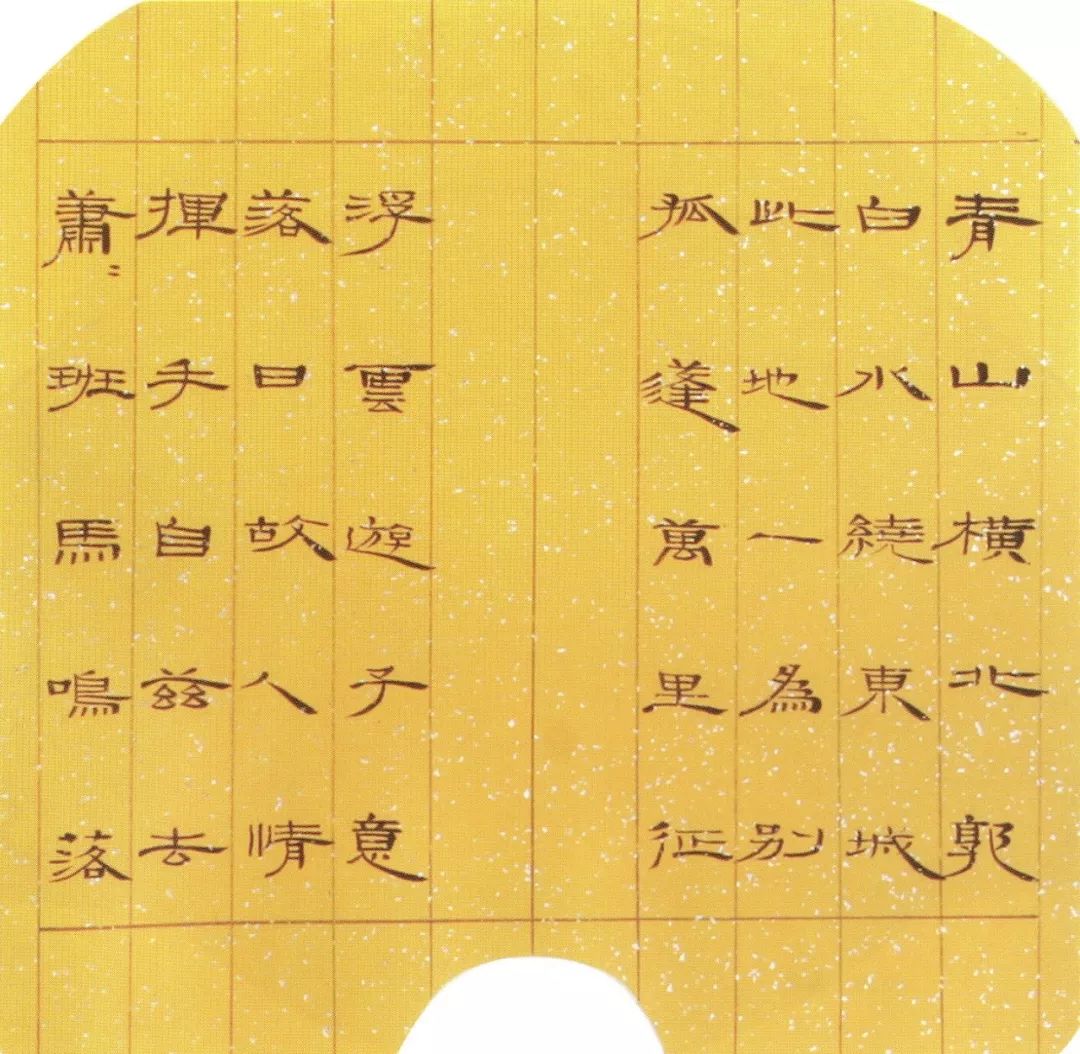 青山橫北郭
白水繞東城
此地一為別
孤蓬萬里征
浮雲遊子意
落日故人情
揮手自茲去
蕭〻班馬鳴落